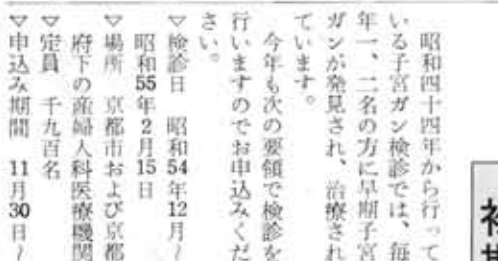 昭和四十四年から行って
いる子宮ガン検診では、毎
年一、二名の方に早期子宮
ガンが発見され、治療され
ています。
今年も次の要領で検診を
行いますのでお申込みくだ
さい。
▽検診日 昭和54年12月〜
昭和55年2月15日
▽場所 京都市および京都
府下の産婦人科医療機関
▽定員 千九百名
▽申込み期間 11月30日〜